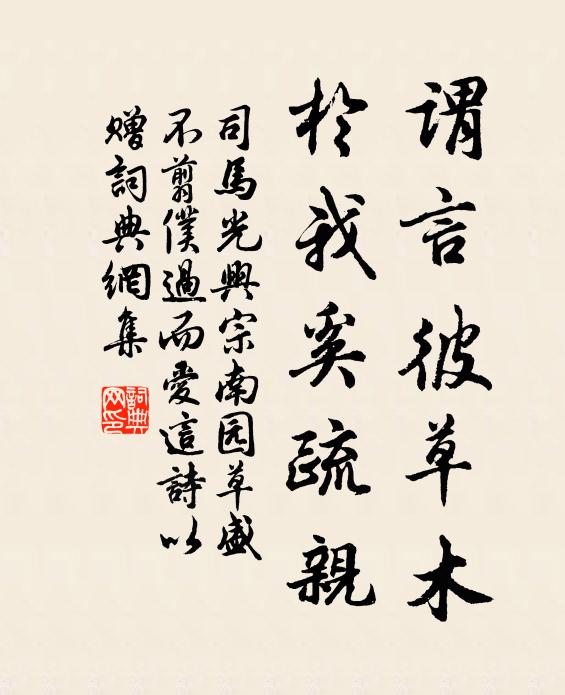 謂言彼草木
於我奚疏親
司馬光興宗南园草盛
不翦僕過而愛這詩以
贈詞典網集
詞典
网印